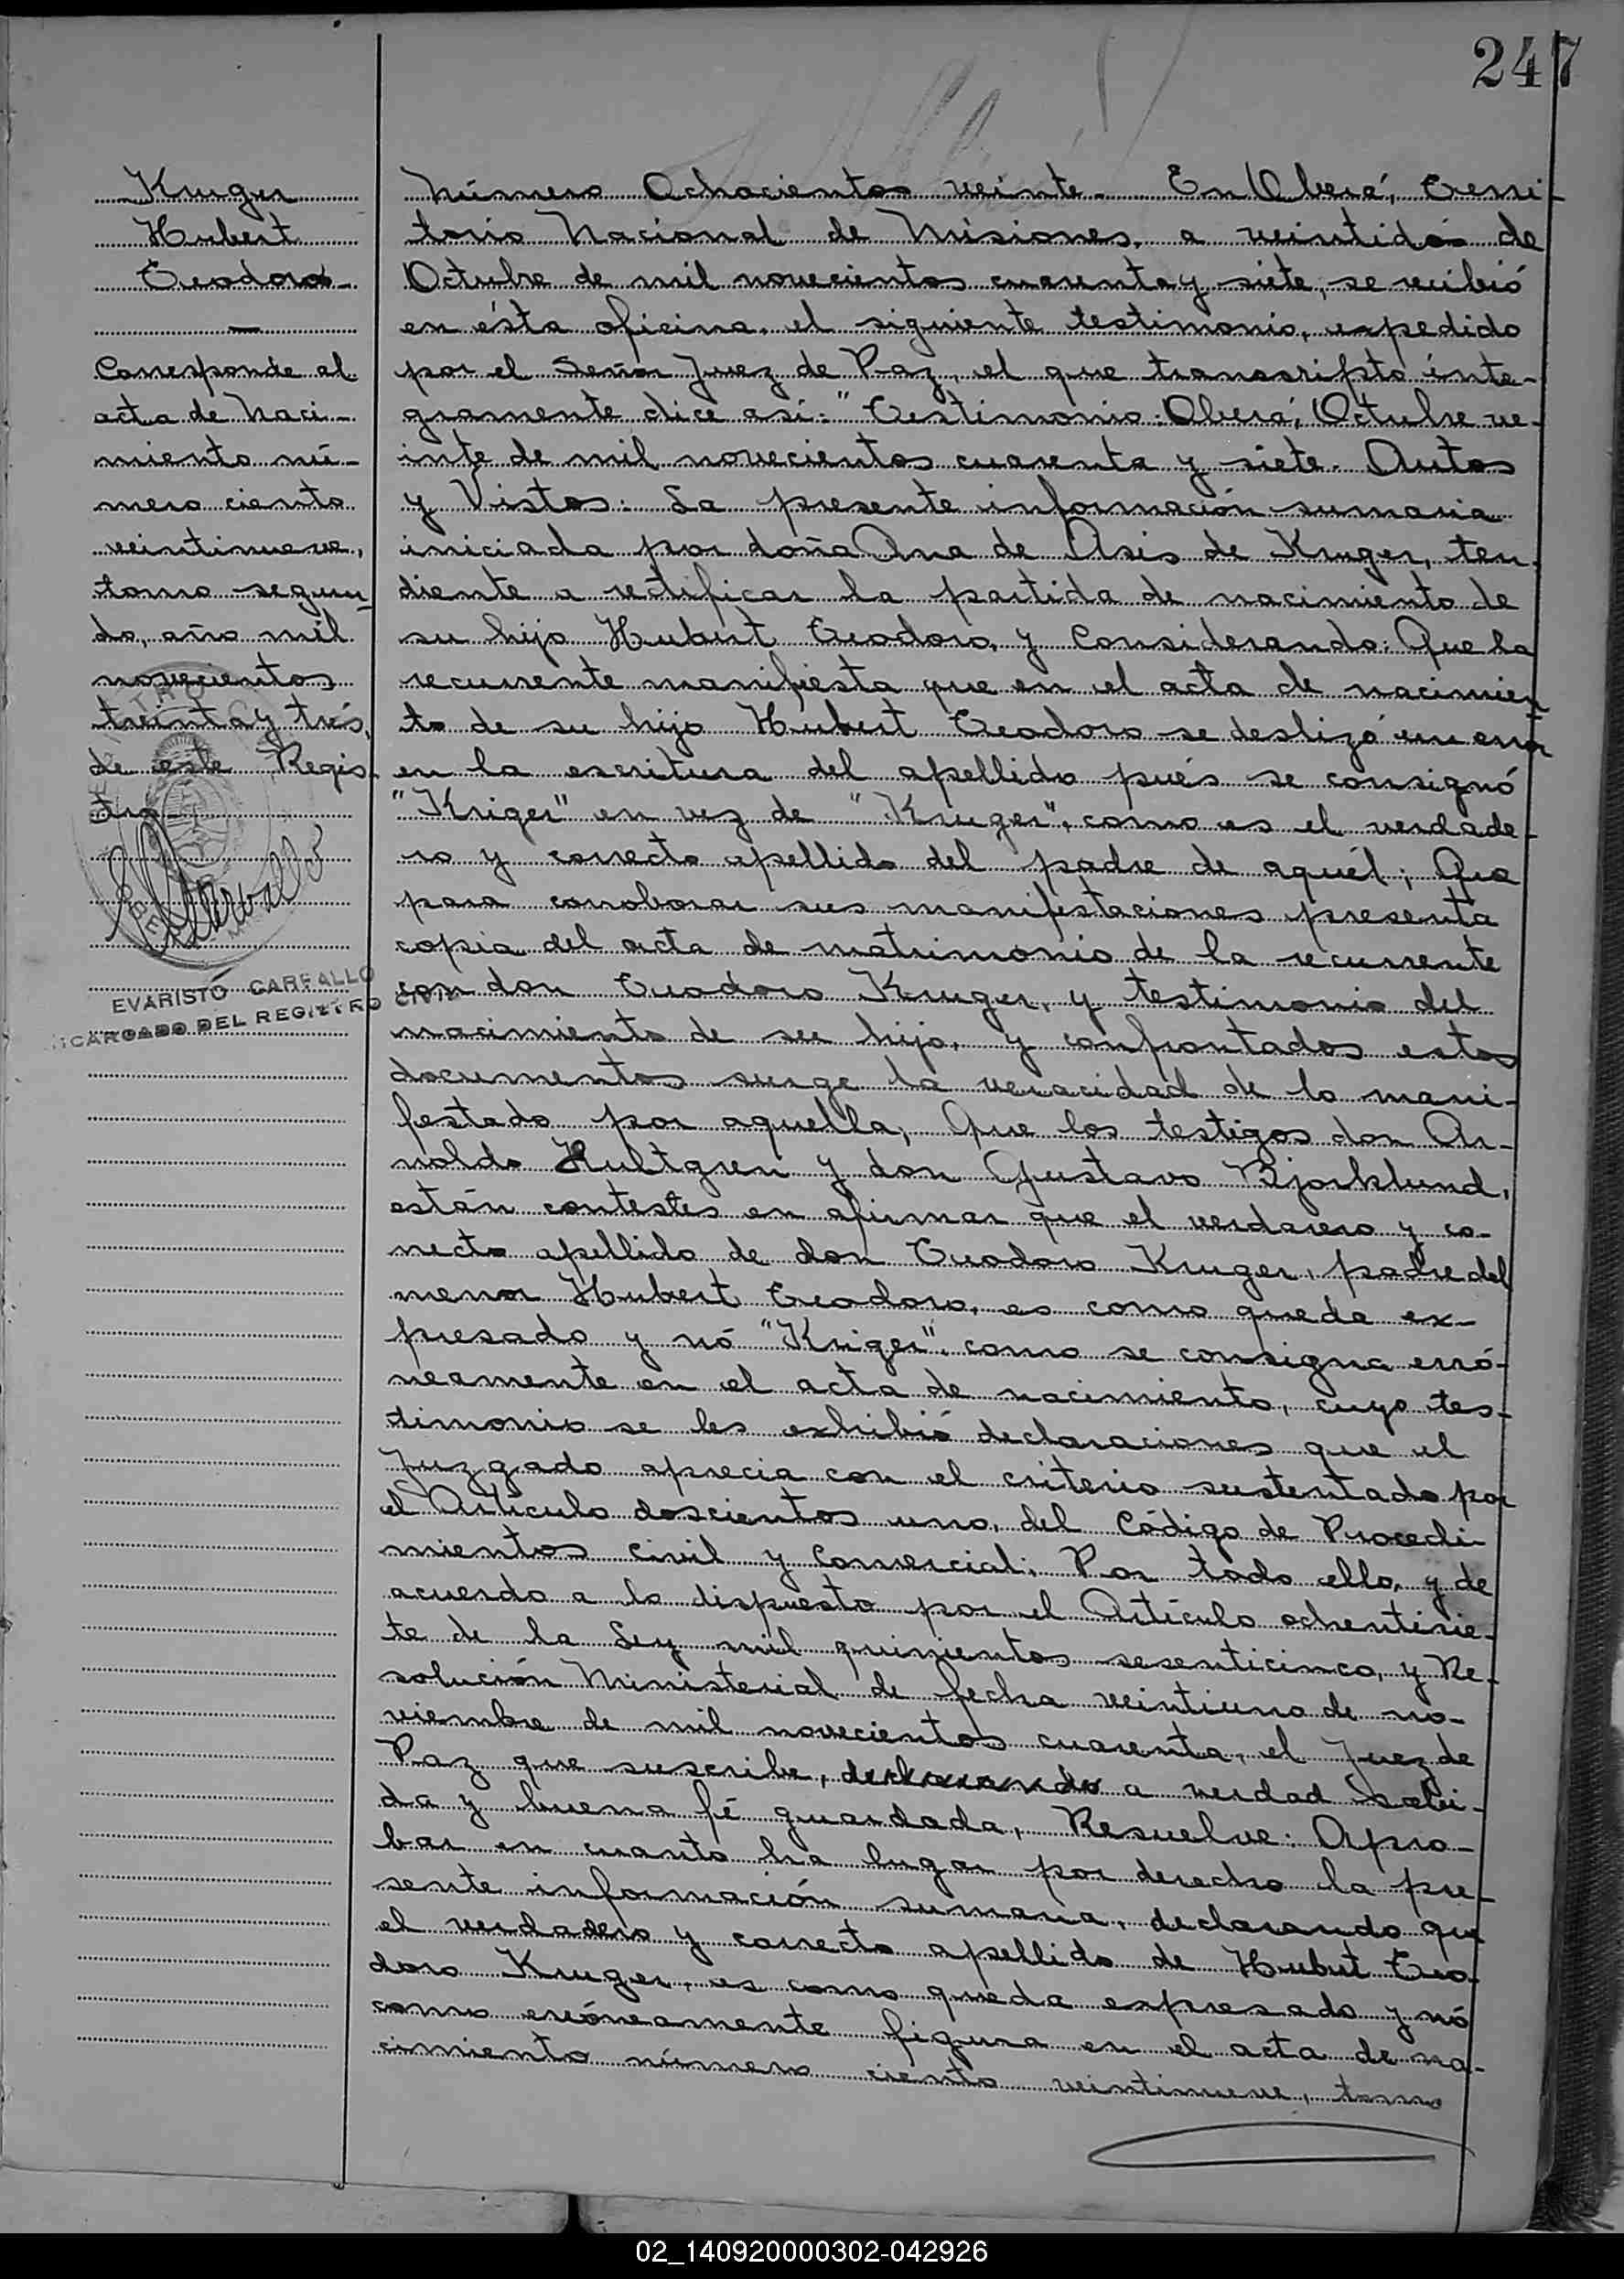 247
Kruger
Hubert
Teodoro
Corresponde al
acta de Naci-
miento nú-
mero ciento
veintinueve,
tomo segun-
do, año mil
novecientos
treinta y trés,
de este Regis-
tro
EVARISTO CARFALLO
CARGADO DEL REGISTRO CIVIL
Número Ochocientos veinte. En Oberá, Terri-
torio Nacional de Misiones, a veintidós de
Octubre de mil novecientos cuarenta y siete, se recibió
en ésta oficina, el siguiente testimonio, expedido
por el Señor Juez de Paz, el que transcripto ínte-
gramente dice así: "Testimonio: Oberá, Octubre ve-
inte de mil novecientos cuarenta y siete. Autos
y Vistos: La presente información sumaria
iniciada por doña Ana de Asis de Kruger, ten-
diente a rectificar la partida de nacimiento de
su hijo Hubert Teodoro, y Considerando: Que la
recurrente manifiesta que en el acta de nacimien-
to de su hijo Hubert Teodoro se deslizó un error
en la escritura del apellido pués se consignó
"Kriger" en vez de "Kruger", como es el verdade-
ro y correcto apellido del padre de aquél; Que
para corroborar sus manifestaciones presenta
copia del acta de matrimonio de la recurrente
con don Teodoro Kruger, y testimonio del
nacimiento de su hijo, y confrontados estos
documentos surge la veracidad de lo mani-
festado por aquella; Que los testigos don Ar-
noldo Hultgren y don Gustavo Bjorklund,
están contestes en afirmar que el verdarero y co-
rrecto apellido de don Teodoro Kruger, padre del
menor Hubert Teodoro, es como queda ex-
presado y nó "Kriger", como se consigna erró-
neamente en el acta de nacimiento, cuyo tes-
timonio se les exhibió declaraciones que el
Juzgado aprecia con el criterio sustentado por
el Artículo doscientos uno, del Código de Procedi-
mientos Civil y Comercial; Por todo ello, y de
acuerdo a lo dispuesto por el Artículo ochentisie-
te de la Ley mil quinientos sesenticinco, y Re-
solución Ministerial de fecha veintiuno de no-
viembre de mil novecientos cuarenta, el Juez de
Paz que suscribe, a verdad Sabi-
da y buena fé guardada, Resuelve: Apro-
bar en cuanto ha lugar por derecho la pre-
sente información sumaria, declarando que
el verdadero y correcto apellido de Hubert Teo-
doro Kruger, es como queda expresado y nó
como erróneamente figura en el acta de na-
cimiento número ciento veintinueve, tomo
02_140920000302-042926